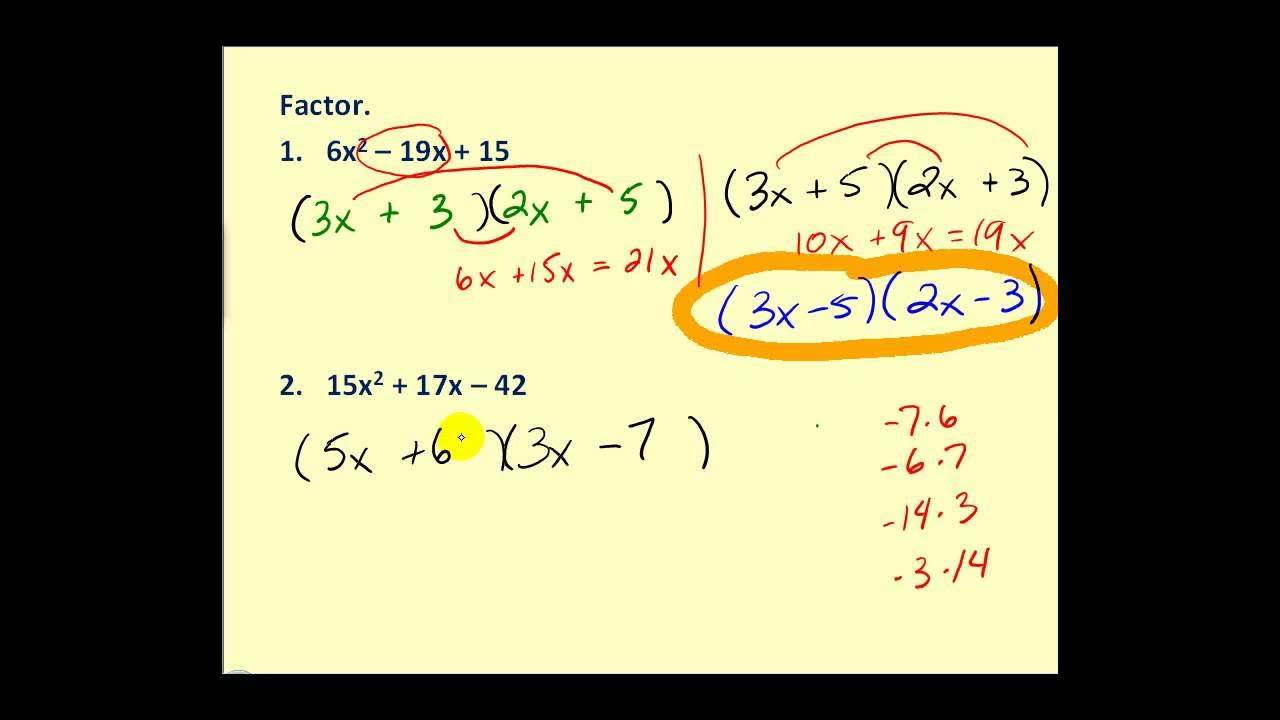 Factor.
1. 6x² – 19x + 15
(3x + 3)(2x + 5)
6x + 15x = 21x
(3x + 5)(2x + 3)
10x + 9x = 19x
(3x - 5)(2x - 3)
2. 15x² + 17x – 42
(5x + 6)(3x - 7)
-7·6
-6·7
-14·3
-3·14